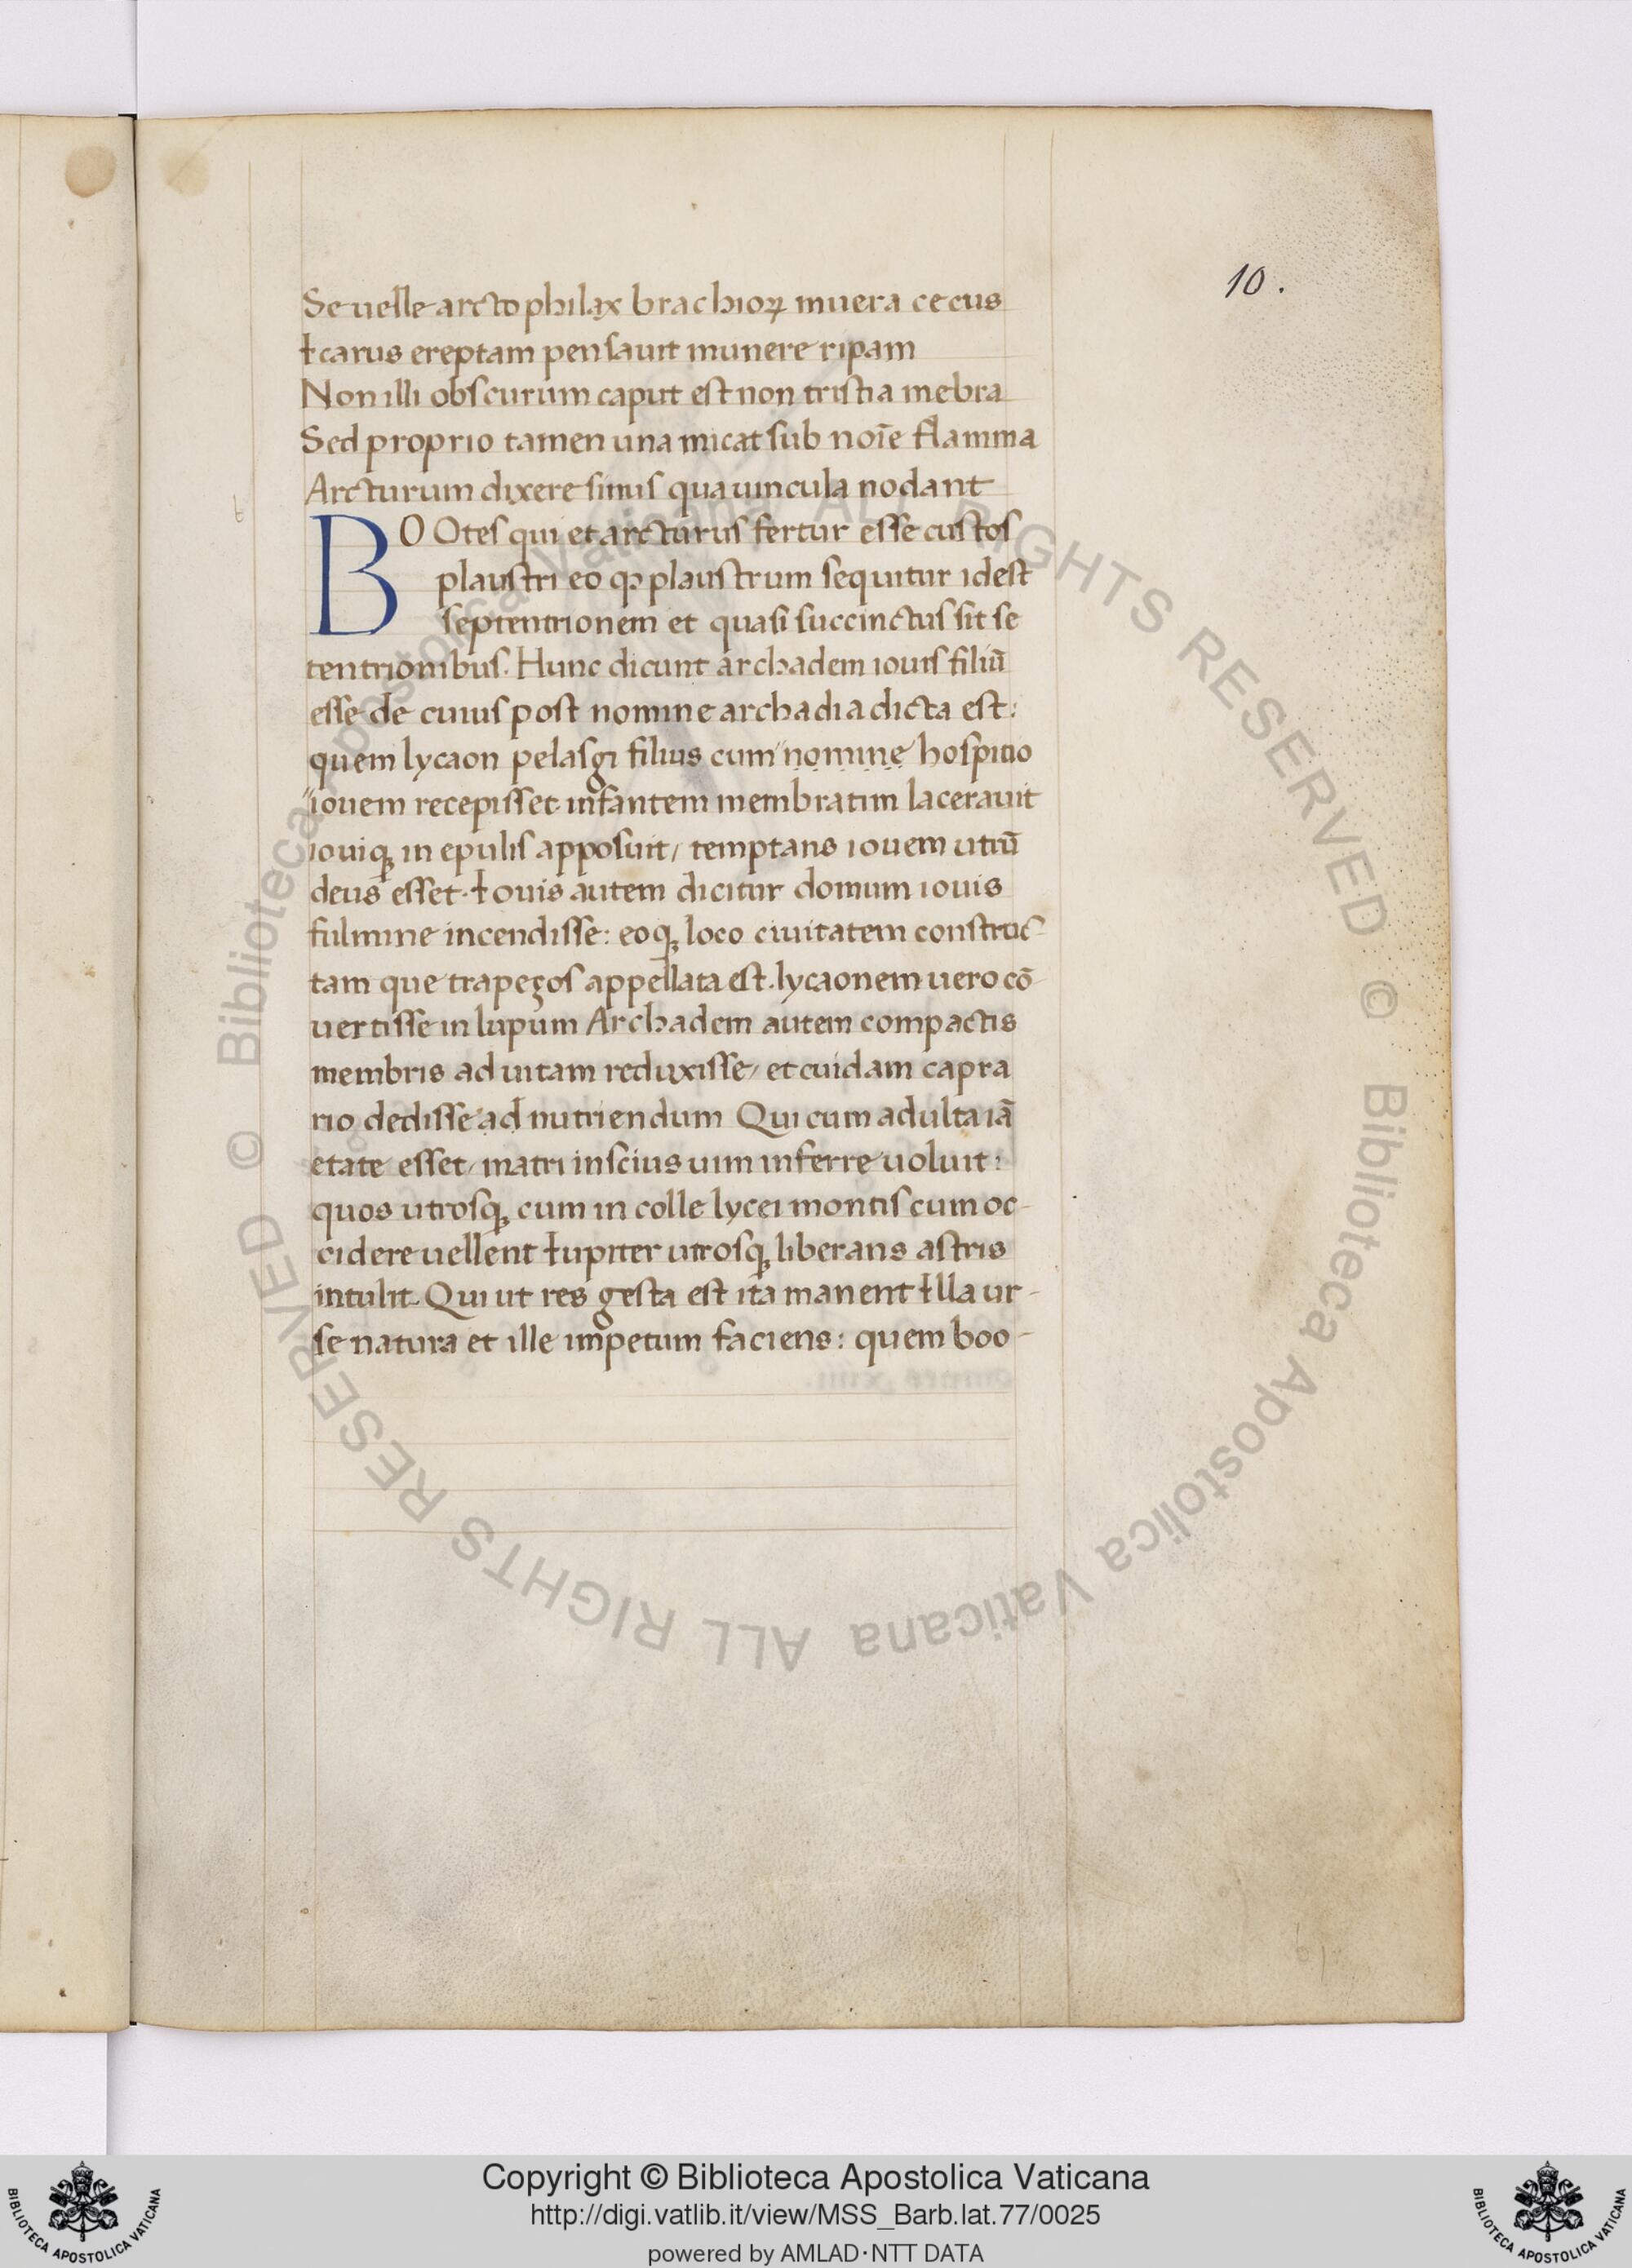 10.
Se uelle arctophilax brachioꝝ muera cecus
Icarus ereptam pensauit munere ripam
Non illi obscurum caput est non tristia mebra
Sed proprio tamen una micat sub noīe flamma
Arcturum dixere sinus qua uincula nodant
BOOtes qui et arcturus fertur esse custos
plaustri eo ꝙ plaustrum sequitur idest
septentrionem et quasi succinctus sit se
tentrionibus. Hunc dicunt archadem iouis filiū
esse de cuius post nomine archadia dicta est:
quem lycaon pelasgi filius cum nomine hospitio
iouem recepisset infantem membratim lacerauit
iouiq; in epulis apposuit, temptans iouem utrū
deus esset. Iouis autem dicitur domum iouis
fulmine incendisse: eoq; loco ciuitatem construc-
tam que trapezos appellata est. lycaonem uero cō-
uertisse in lupum Archadem autem compactis
membris ad uitam reduxisse, et cuidam capra
rio dedisse ad nutriendum Qui cum adulta iā
etate esset, matri inscius uim inferre uoluit:
quos utrosq; cum in colle lycei montis cum oc-
cidere uellent Iupiter utrosq; liberans astris
intulit. Qui ut res gesta est ita manent Illa ur-
se natura et ille impetum faciens: quem boo-
© Biblioteca Apostolica Vaticana ALL RIGHTS RESERVED © Biblioteca Apostolica Vaticana ALL RIGHTS RESERVED
Copyright © Biblioteca Apostolica Vaticana
http://digi.vatlib.it/view/MSS_Barb.lat.77/0025
powered by AMLAD·NTT DATA
BIBLIOTECA APOSTOLICA VATICANA
BIBLIOTECA APOSTOLICA VATICANA